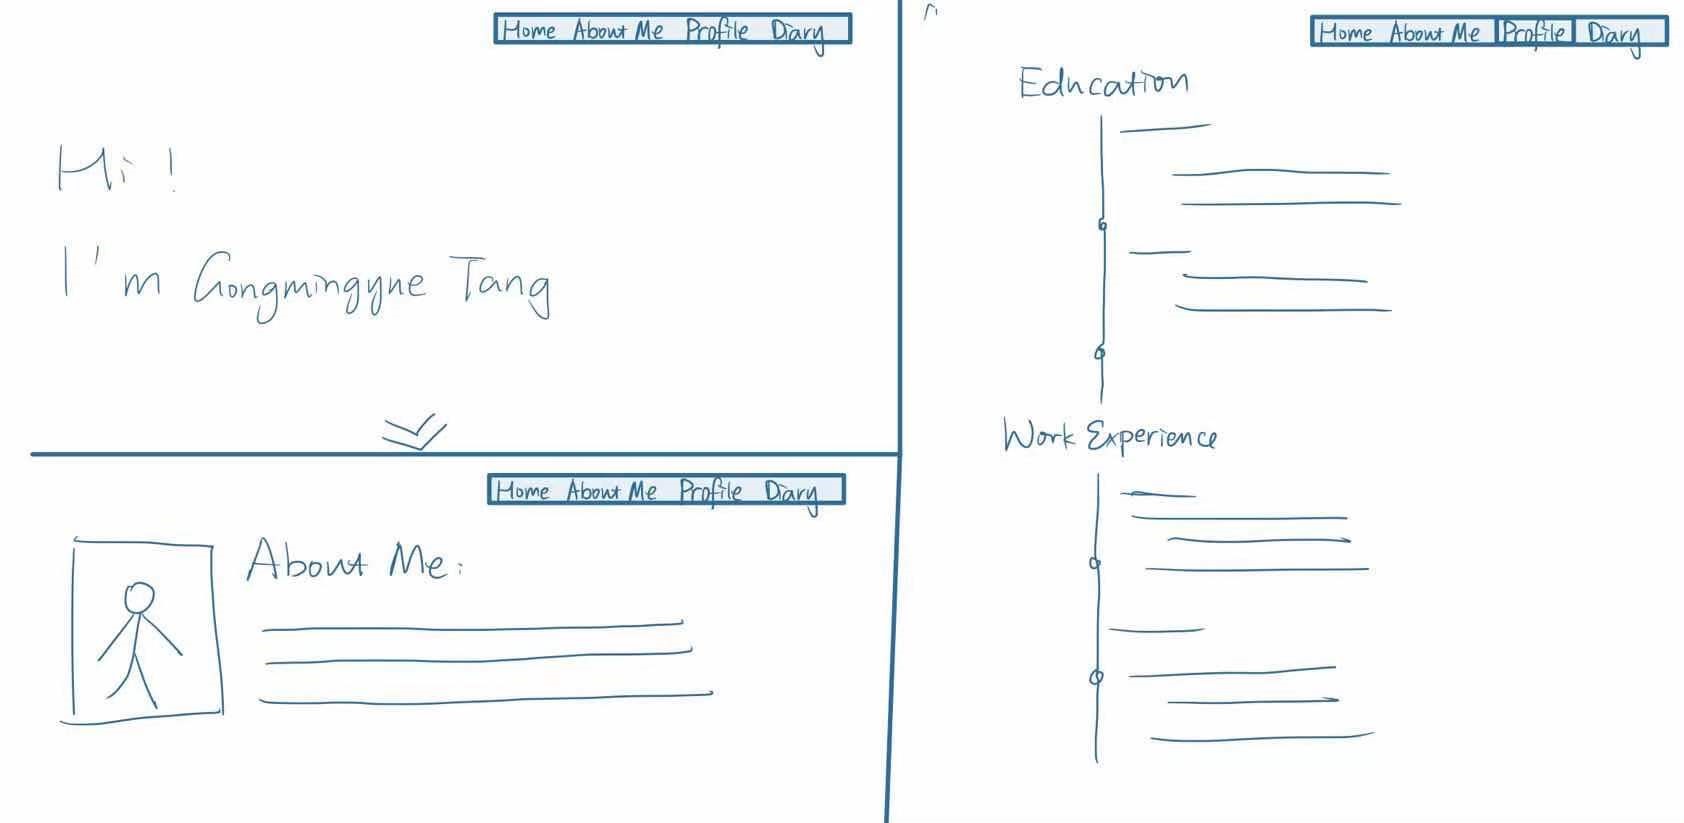 Home About Me Profile Diary
Hi!
I'm Gongmingyue Tang
Home About Me Profile Diary
About Me:
Home About Me Profile Diary
Education
Work Experience